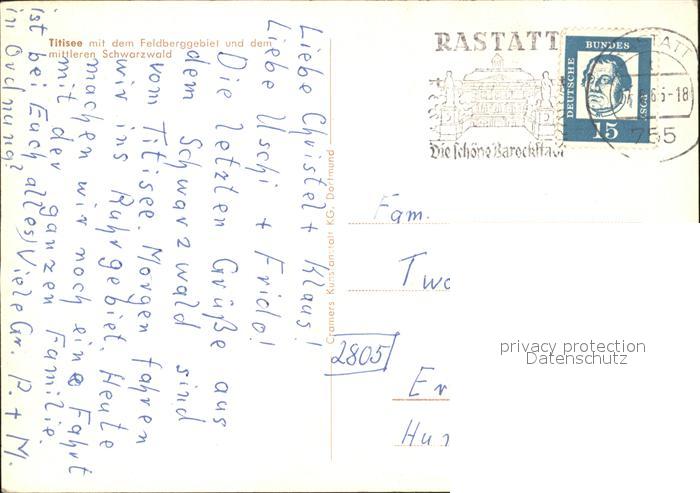 Titisee mit dem Feldberggebiet und dem
mittleren Schwarzwald
Liebe Christel + Klaus!
Liebe Uschi + Frido!
Die letzten Grüße aus
dem Schwarzwald sind
vom Titisee. Morgen fahren
wir ins Ruhrgebiet. Heute
machen wir noch eine Fahrt
mit der ganzen Familie.
Ist bei Euch alles
in Ordnung?
Viele Gr. P. + M.
Cramers Kunstanstalt KG, Dortmund
RASTATT
Die schöne Barockstadt
DEUTSCHE
BUNDES
POST
15
-18
755
Fam.
2805
privacy protection
Datenschutz